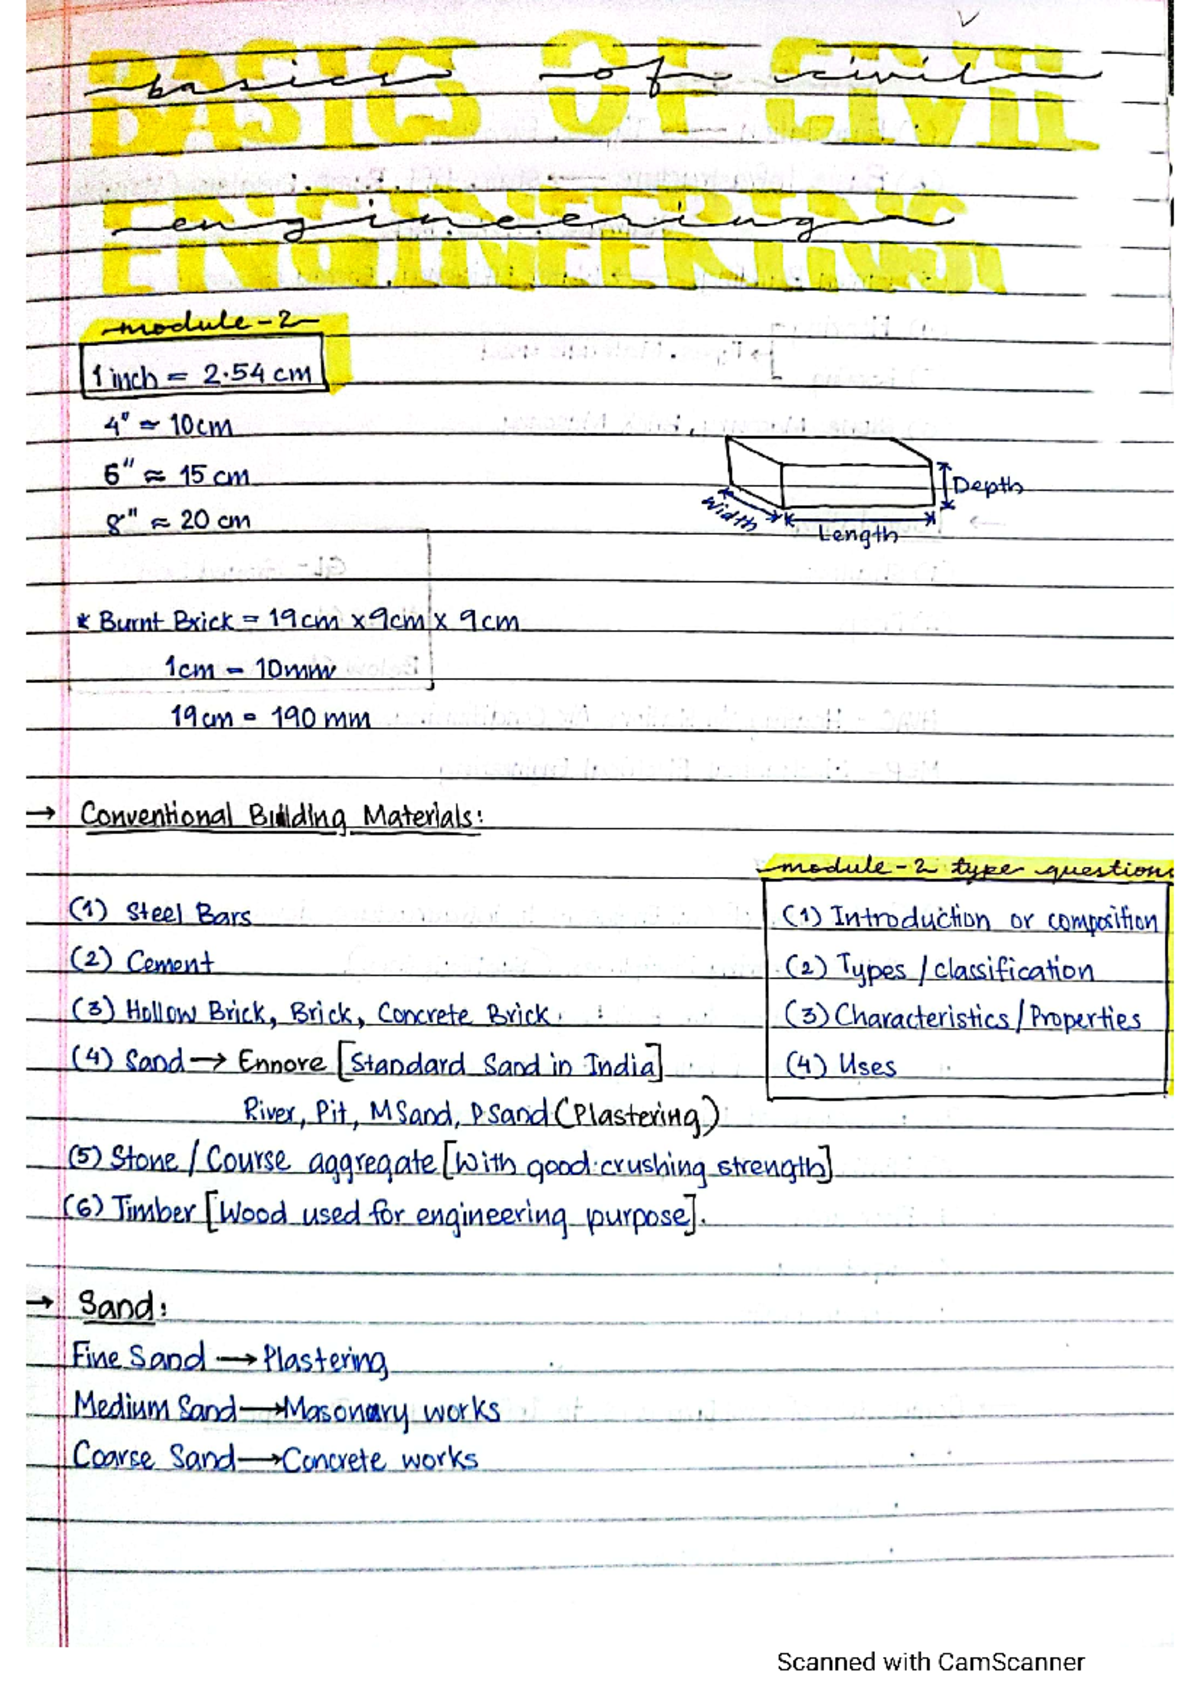 BASICS OF CIVIL
basics of civil
ENGINEERING
engineering
module-2
1 inch = 2.54 cm
4" ≃ 10cm
6" ≈ 15 cm
8" ≈ 20 cm
Depth
Width
Length
* Burnt Brick = 19cm x 9cm x 9cm
1cm - 10mm
19cm = 190 mm
→ Conventional Building Materials:
(1) Steel Bars
(2) Cement
(3) Hollow Brick, Brick, Concrete Brick.
(4) Sand → Ennore [Standard Sand in India]
River, Pit, MSand, PSand (Plastering)
(5) Stone / Course aggregate [With good crushing strength]
(6) Timber [Wood used for engineering purpose].
module-2 type questions
(1) Introduction or composition
(2) Types / classification
(3) Characteristics / Properties
(4) Uses
→ Sand:
Fine Sand → Plastering
Medium Sand → Masonary works
Coarse Sand → Concrete works
Scanned with CamScanner